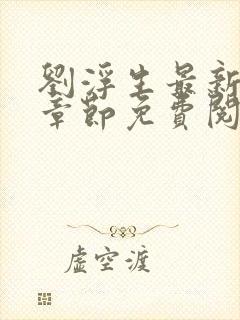 劉浮生最新
章節免費閱
虛空渡